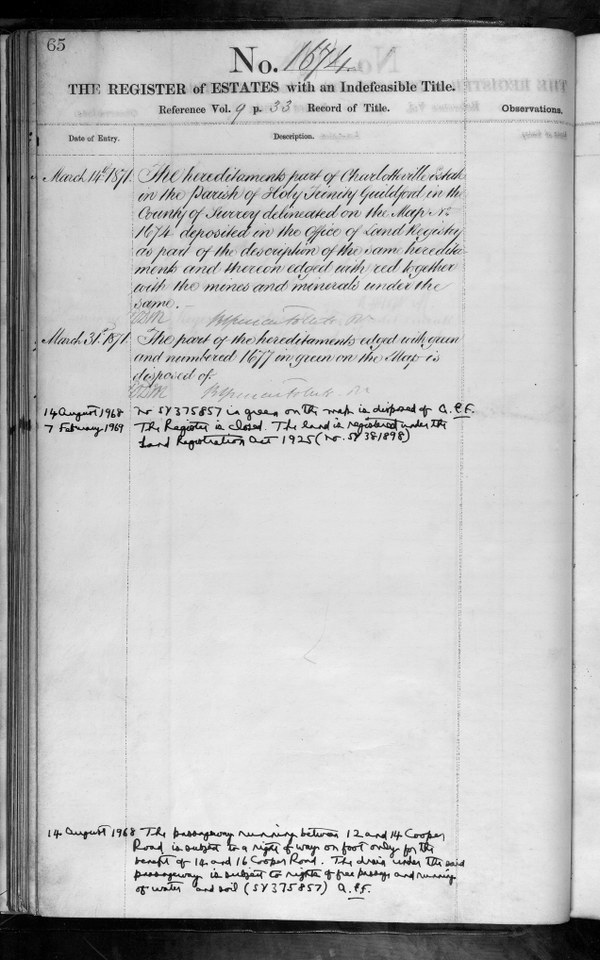 65
No. 1674.
THE REGISTER of ESTATES with an Indefeasible Title.
Reference Vol. 9 p. 33 Record of Title.
Observations.
Date of Entry.
Description.
March 14th 1871. The hereditaments part of Charlotteville Estate
in the Parish of Holy Trinity Guildford in the
County of Surrey delineated on the Map No.
1674 deposited in the Office of Land Registry
as part of the description of the same heredita
ments and thereon edged with red together
with the mines and minerals under the
same.
March 31st 1871. The part of the hereditaments edged with green
and numbered 1677 in green on the Map is
disposed of.
14 August 1968 No SY375857 in green on the map is disposed of
7 February 1969 The Register is closed. The land is registered under the
Land Registration Act 1925 (No. SY381898)
14 August 1968 The passageway running between 12 and 14 Cooper
Road is subject to a right of way on foot only for the
benefit of 14 and 16 Cooper Road. The drain under the said
passageway is subject to rights of free passage and running
of water and soil (SY375857)